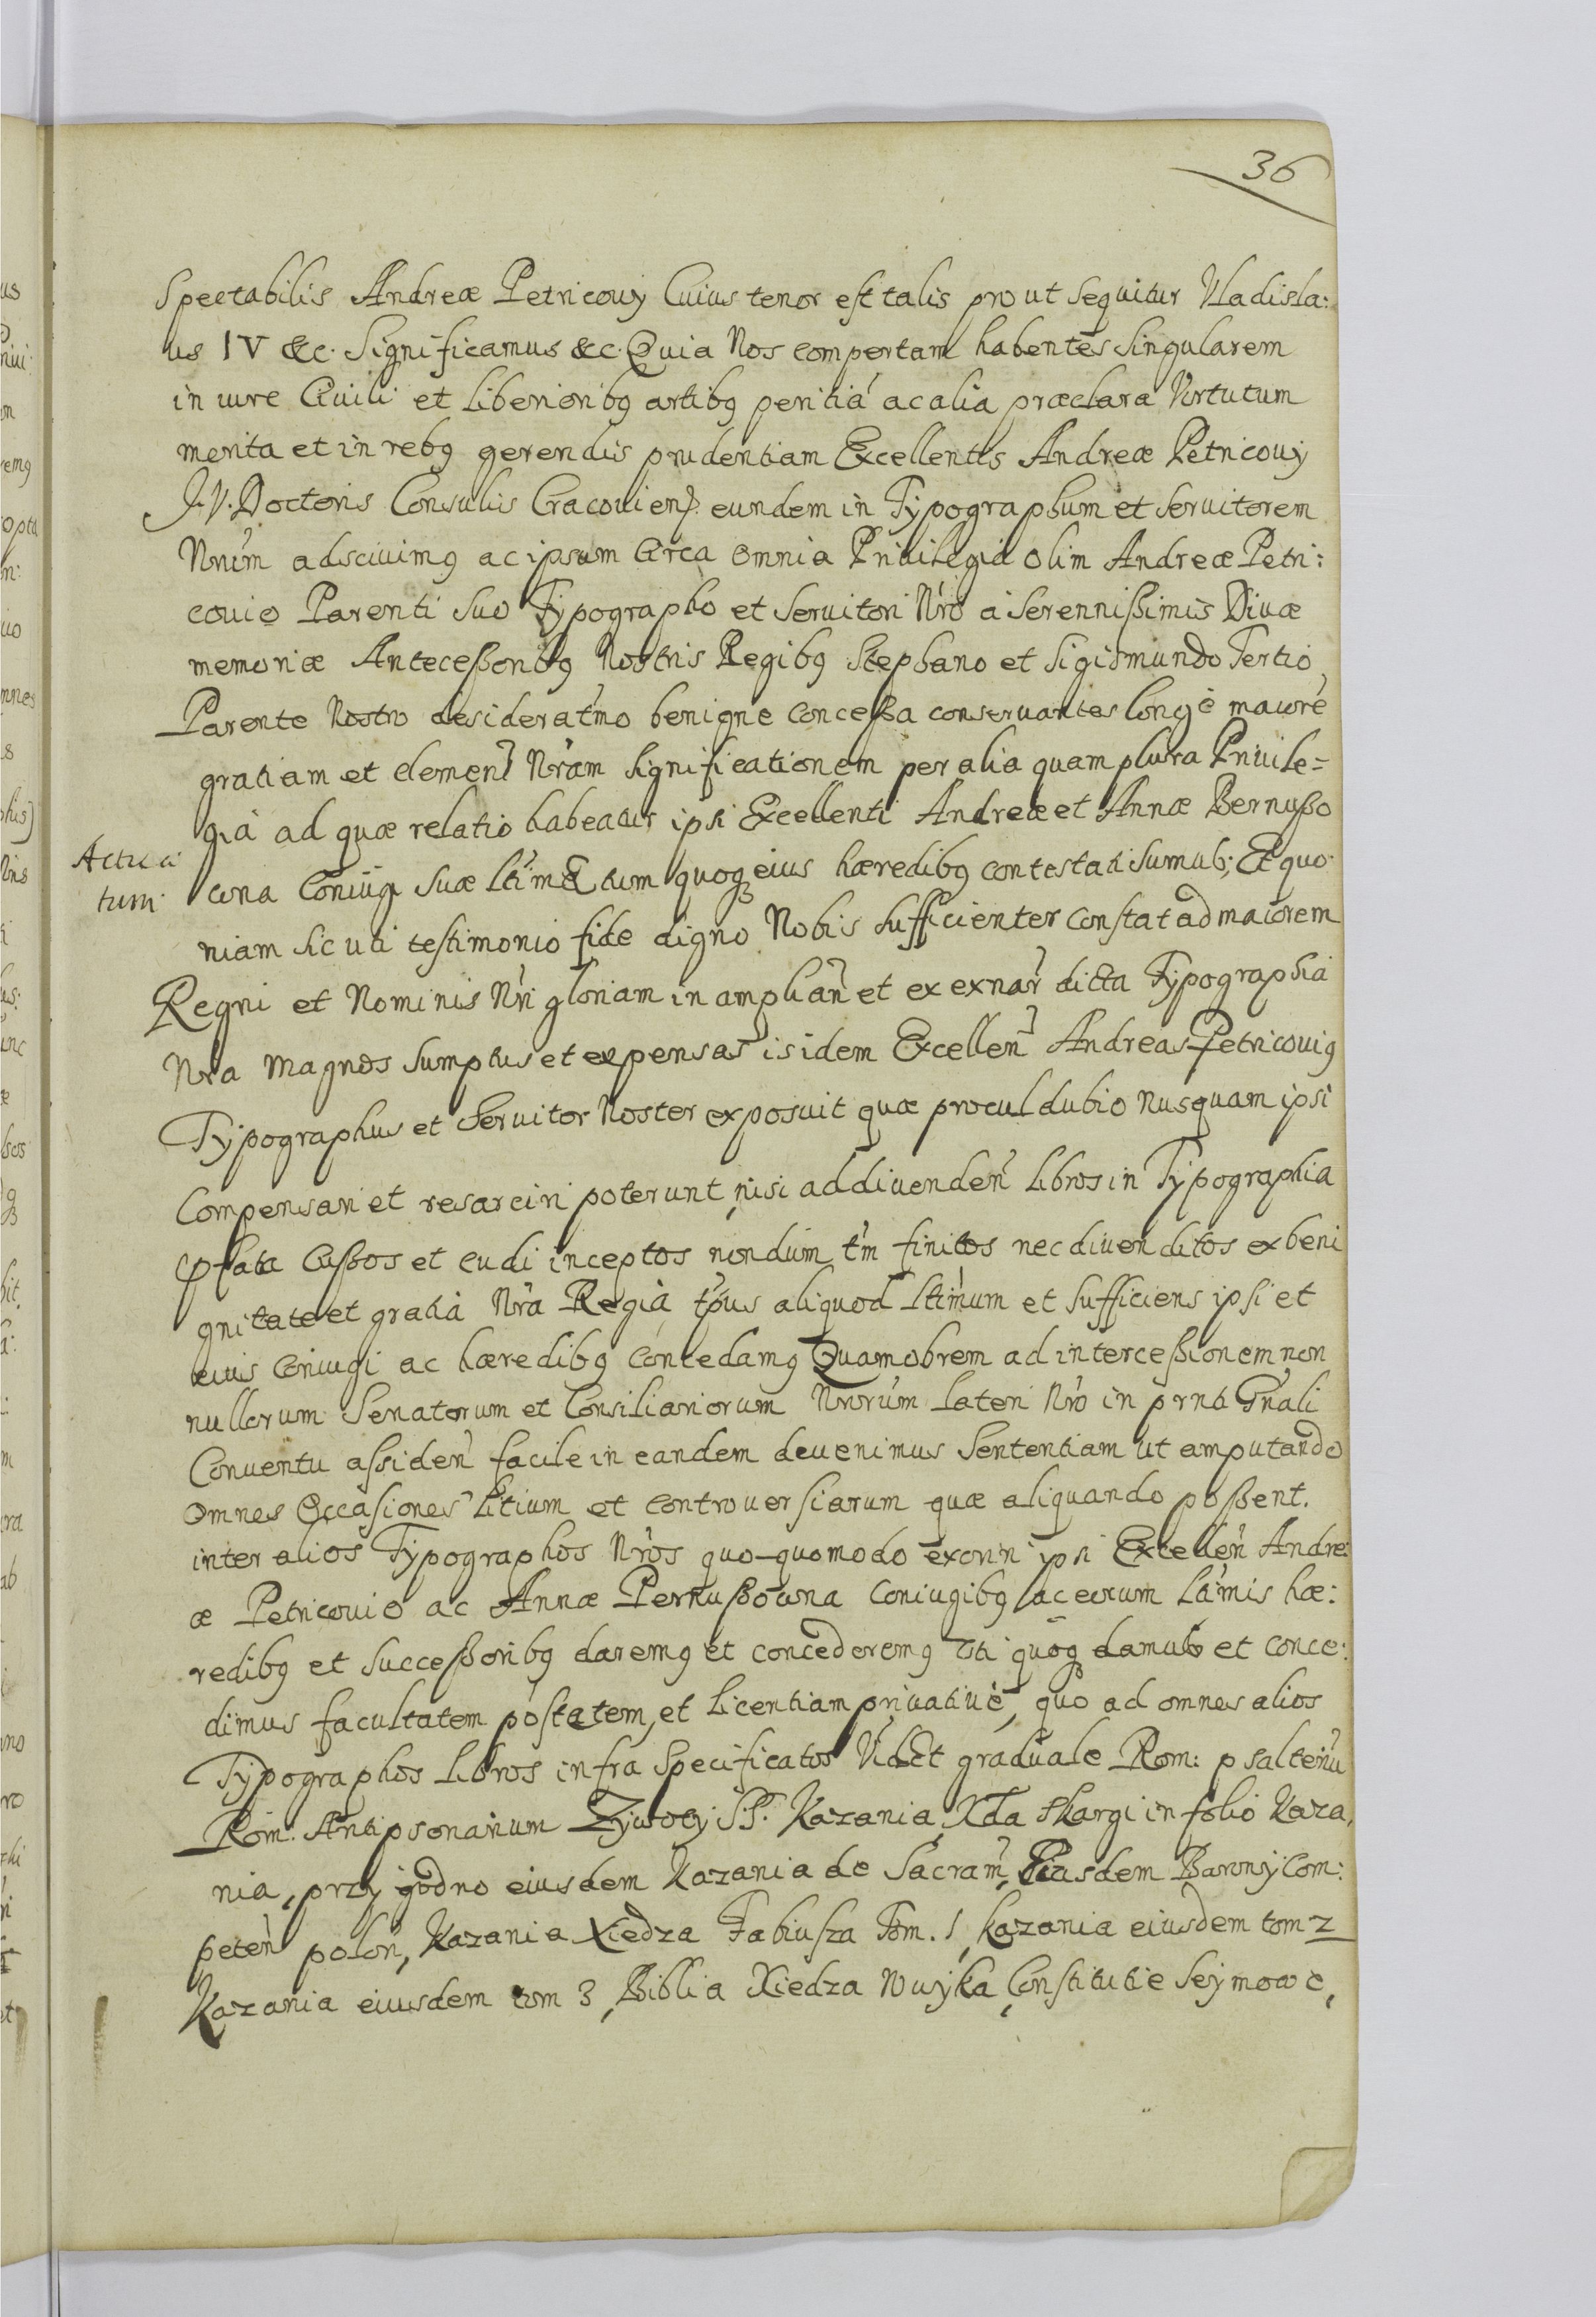 36
Spectabilis Andreæ Petricouÿ Cuius tenor est talis prout sequitur Vladisla:
us IV &c. Significamus &c. Quia Nos compertam habentes singularem
in iure Ciuili et liberioribq artibq peritiá ac alia præclara Virtutum
merita et in rebq gerendis prudentiam Excellentis Andreæ Petricouÿ
J. V. Doctoris Consulis Cracouien. eundem in Typographum et seruitorem
Nrum adsciuimq ac ipsum circa omnia Priuilegia olim Andreæ Petri:
couio Parenti suo Typographo et Seruitori Nro a Serennißimis Diuæ
memoriæ Anteceßoribq Nostris Regibq Stephano et Sigismundo Tertio,
Parente Nostro desideratmo benigne conceßa conseruantes longè maiorē
gratiam et clemen Nram significationem per alia quamplura Priuile=
gia ad quæ relatio habeatur ipsi Excellenti Andreæ et Annæ Bernußo
Actu
tum
wna Coniugi suæ ltimæ tum quoq eius hæredibq contestati sumus; Et quo
niam sicuti testimonio fide digno Nobis sufficienter constat ad maiorem
Regni et Nominis Nri gloriam in amplian et ex exnar dicta Typographia
Nra magnos sumptus et expensas is idem Excellen Andreas Petricouiq
Typographus et Seruitor Noster exposuit quæ procul dubio nusquam ipsi
Compensari et resarciri poterunt, nisi ad diuenden libros in Typographia
pfata Cußos et cudi inceptos nondum tm finitos nec diuenditos ex beni
gnitate et gratiâ Nra Regiâ tpus aliquod ltimum et sufficiens ipsi et
eius Coniugi ac hæredibq concedamq Quamobrem ad interceßionem non
nullorum Senatorum et Consiliariorum Nrorum lateri Nro in prnti Gnali
Conuentu assiden facile in eandem deuenimus Sententiam ut amputando
omnes occasiones litium et controuersiarum quæ aliquando poßent.
inter alios Typographos Nros quo-quomodo exoriri ipsi Excellen Andre:
æ Petricouio ac Annæ Pernußowna Coniugibq ac eorum ltimis hæ:
redibq et succeßoribq daremq et concederemq uti quoq damus et conce:
dimus facultatem postatem, et licentiam priuatiuè, quo ad omnes alios
Typographos libros infra specificatos Vidlt graduale Rom: psalteriu
Rom: Antipsonarium Zÿwotÿ S.S. Kazania, Xda Skargi in folio Kaza,
nia, przÿgodno eiusdem Kazania de Sacram, Eiusdem Baronÿ Com:
peten polon, Kazania Xiedza Fabiusza Tom. 1, kazania eiusdem tom 2
Kazania eiusdem tom 3, Biblia Xiedza Wuÿka, Constitutie Seÿmowe,